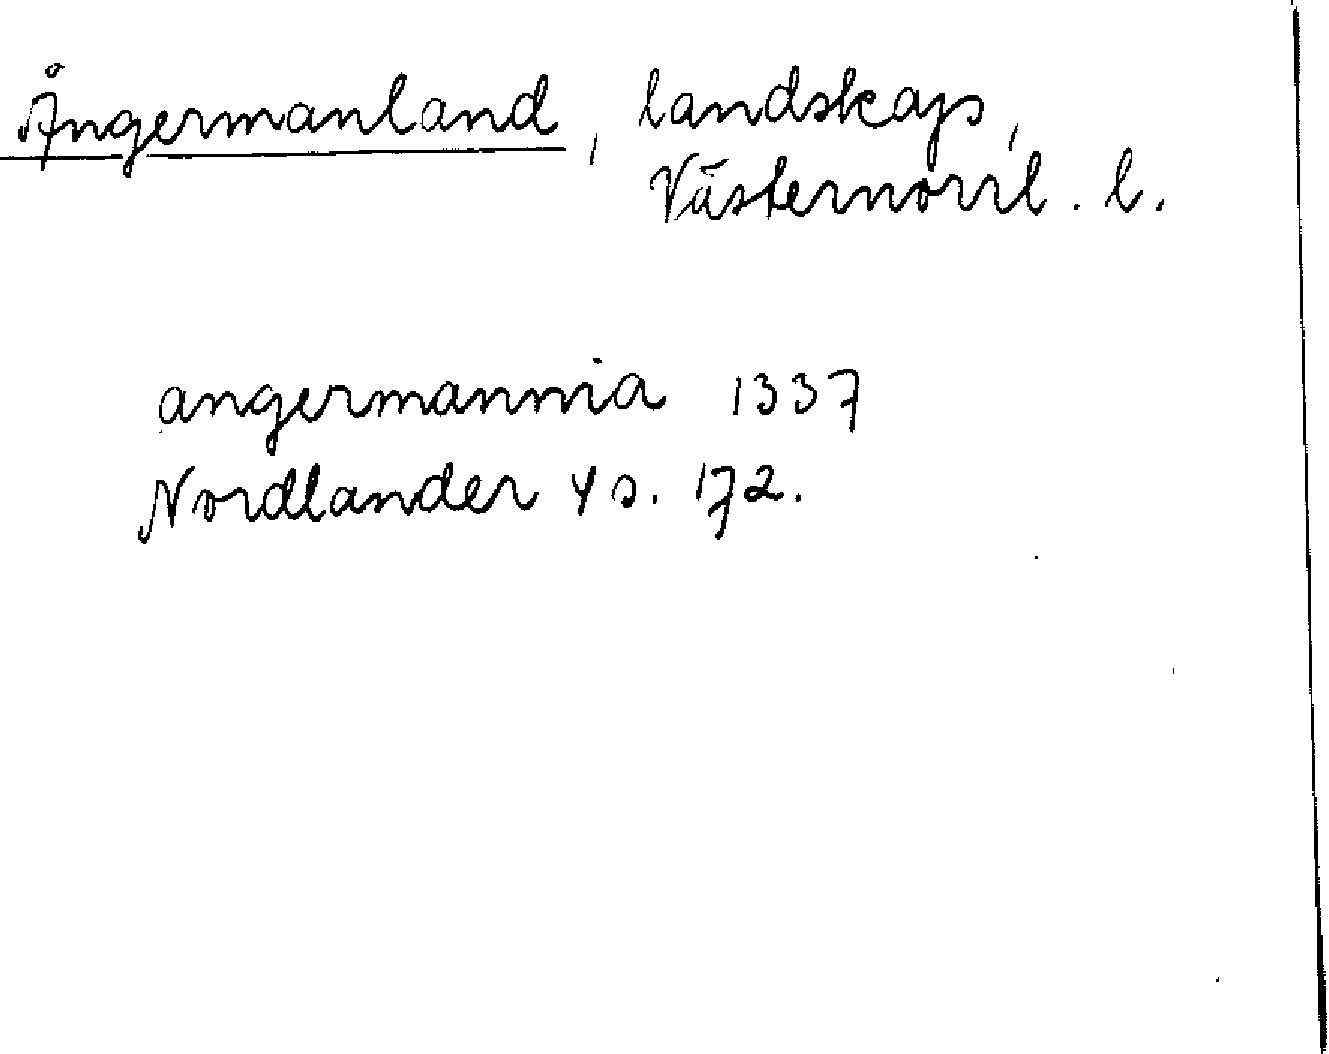 Ångermanland, landskap,
Västernorrl. l.
angermannia 1337
Nordlander 4 s. 172.